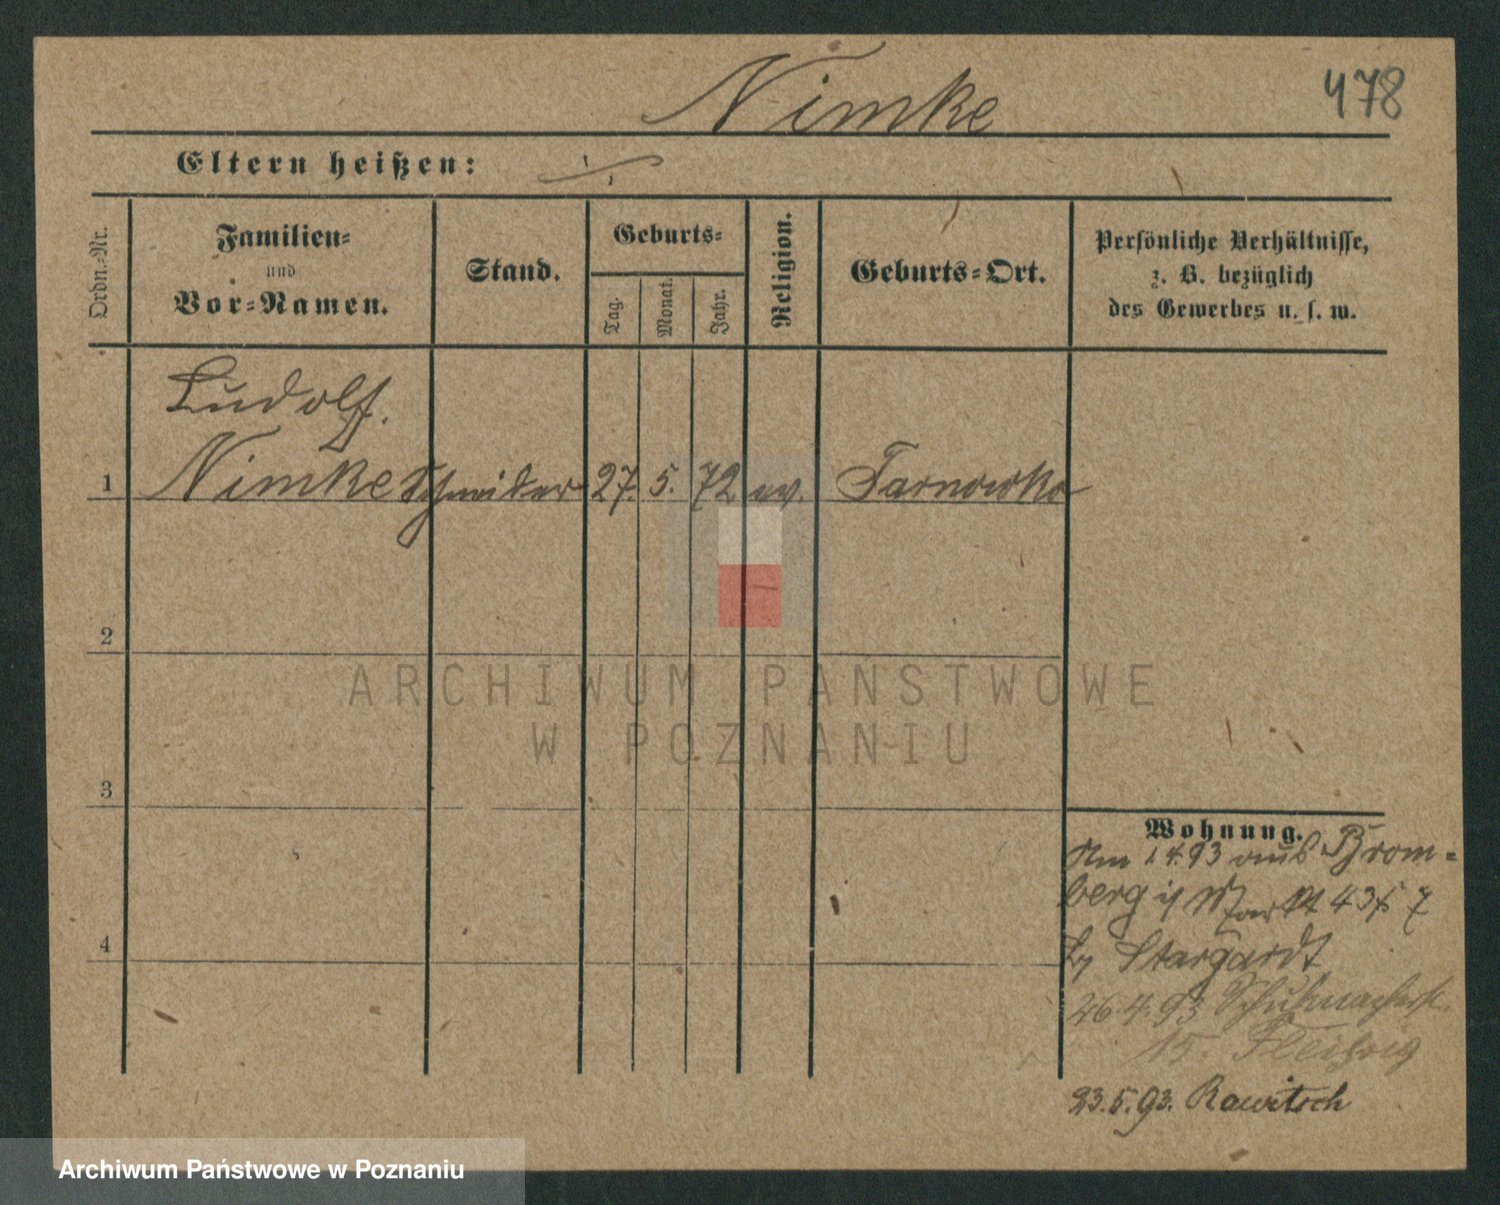 Nimke
478
Eltern heißen:
Ordn.-Nr.
Familien-
und
Vor-Namen.
Stand.
Geburts-
Tag.
Monat.
Jahr.
Religion.
Geburts-Ort.
Persönliche Verhältnisse,
z. B. bezüglich
des Gewerbes u. s. w.
Ludolf.
1 Nimke Schneider 27. 5. 72 ev. Tarnowko
2
3
4
ARCHIWUM PAŃSTWOWE
W POZNANIU
Wohnung.
Am 1.4.93 aus Brom-
berg Markt
Stargardt
26.4.93 Schuhmacherst
15.
23.5.93. Rawitsch
Archiwum Państwowe w Poznaniu